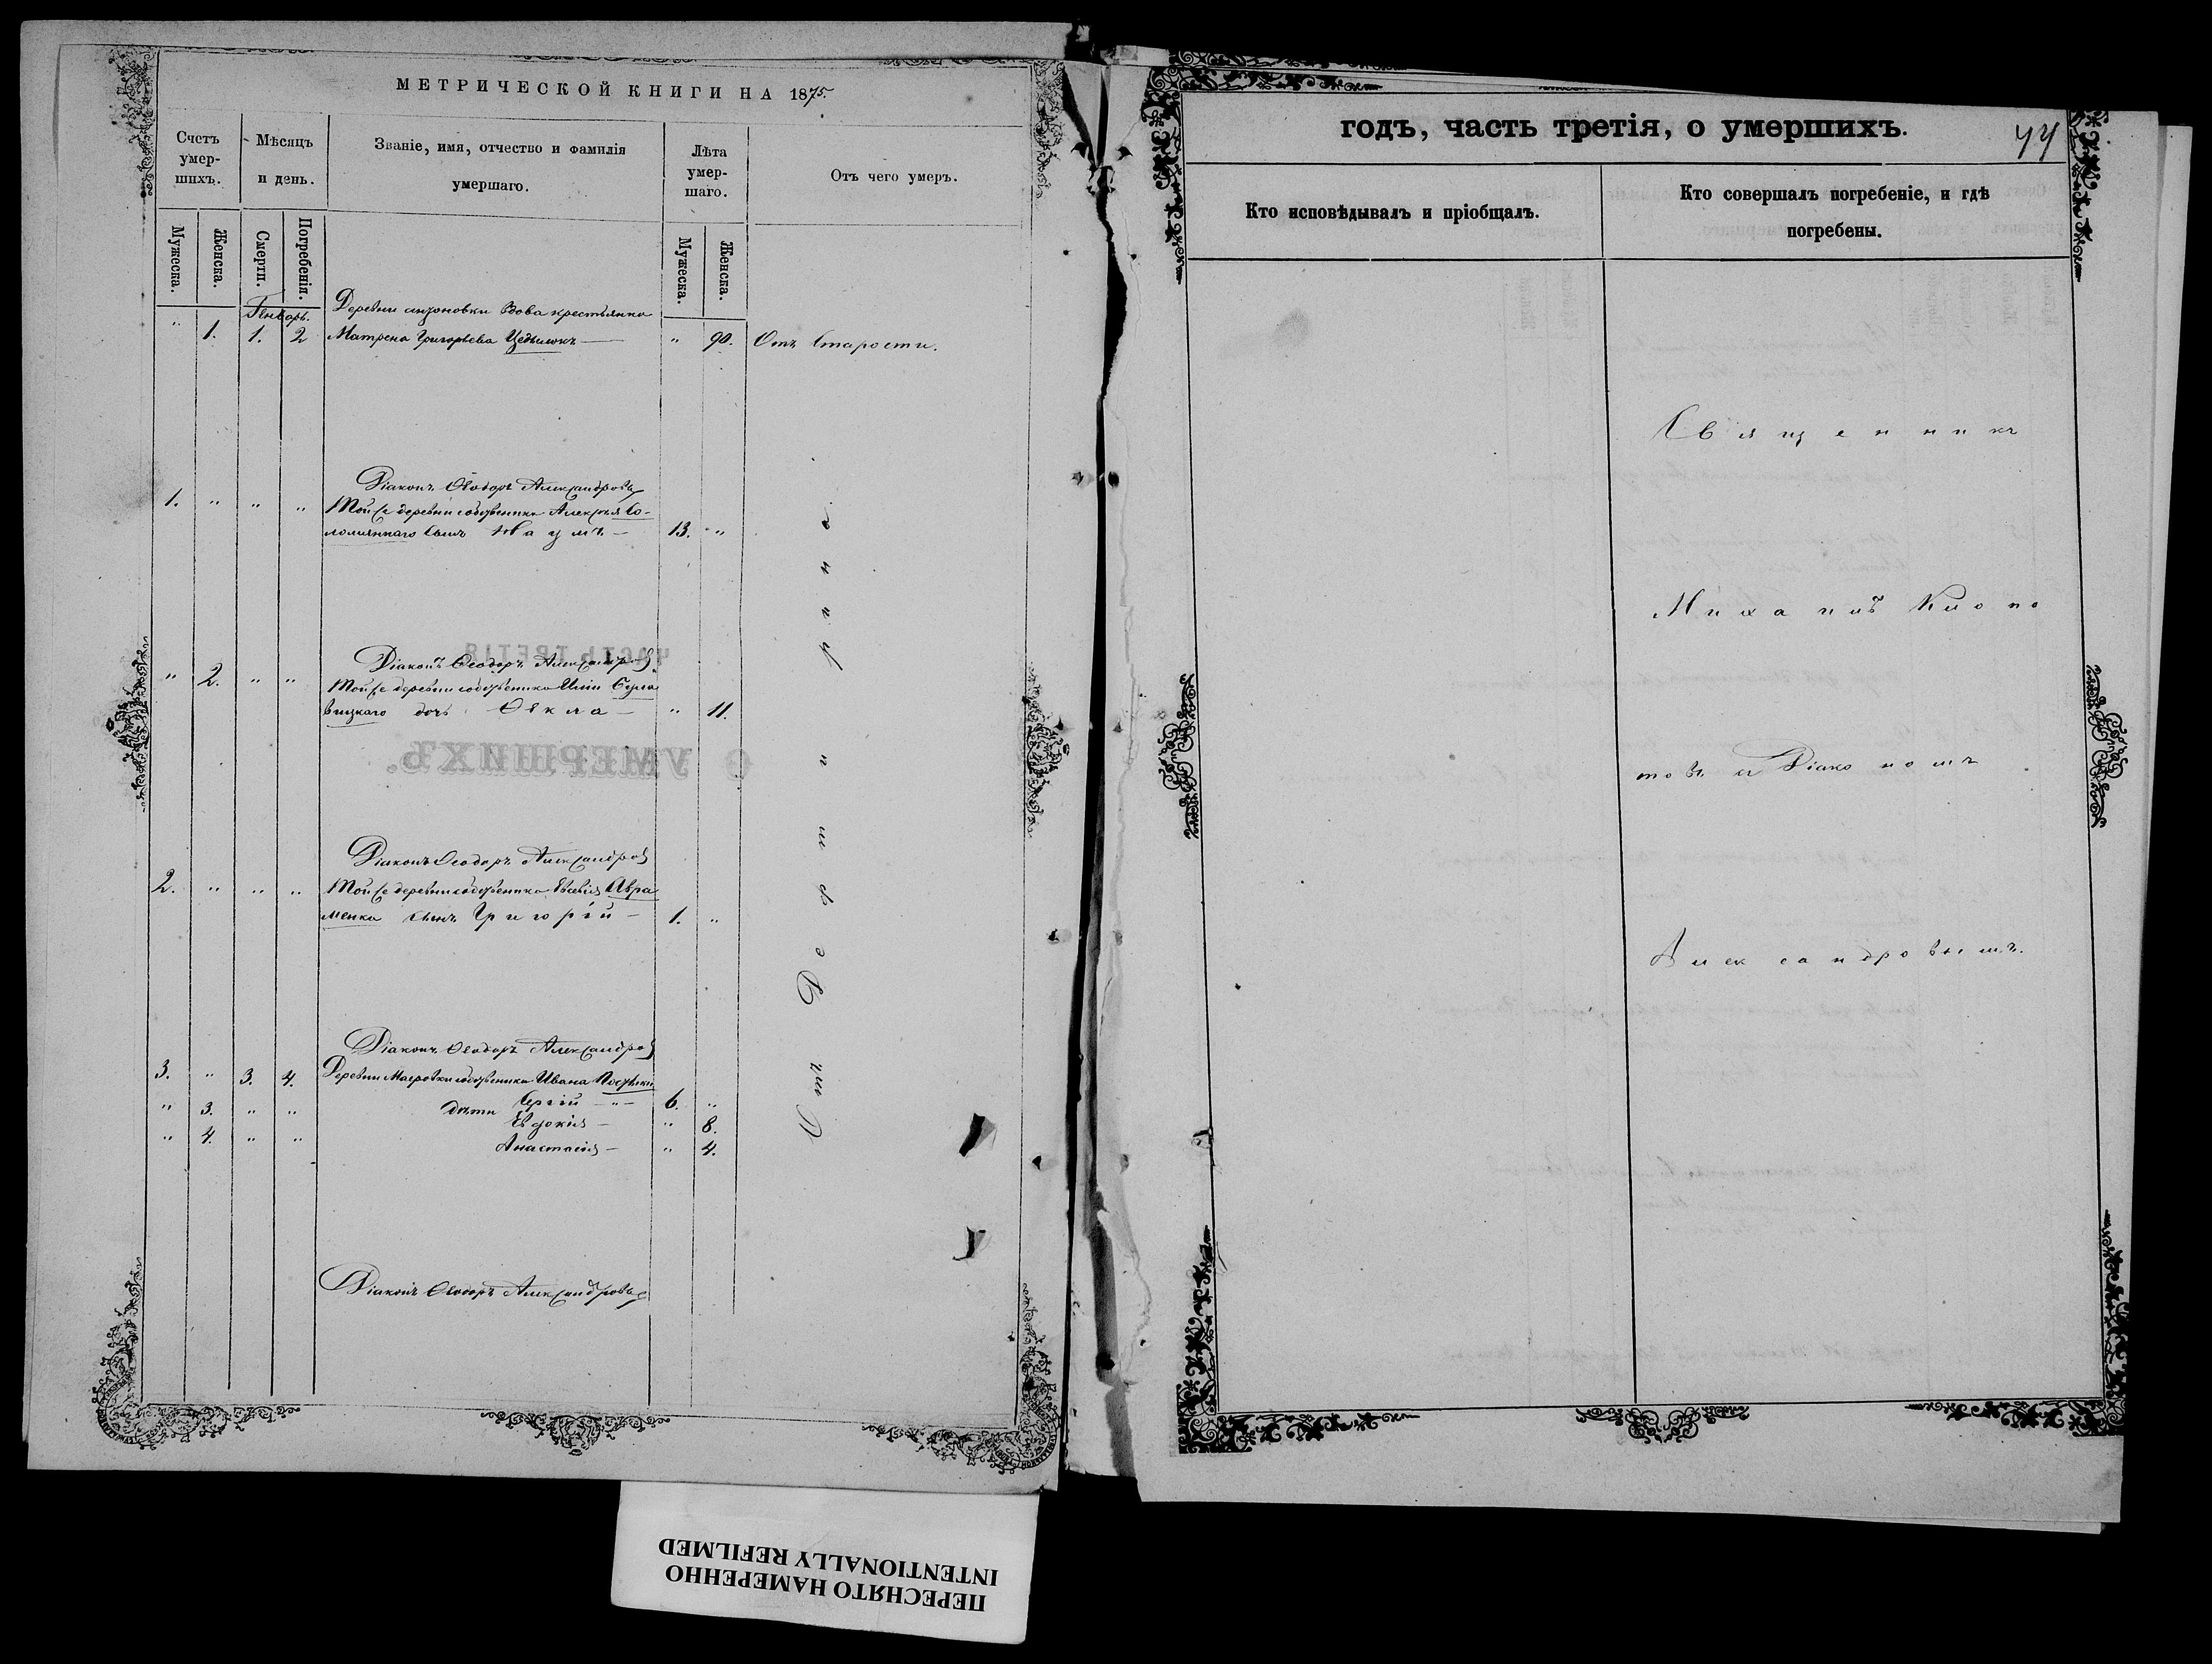 МЕТРИЧЕСКОЙ КНИГИ НА 1875.
Счетъ умер-шихъ.
Мѣсяцъ и день.
Званіе, имя, отчество и фамилія
умершаго.
Лѣта умер-шаго.
Отъ чего умеръ.
Мужеска.
Женска.
Смерти.
Погребенія.
Мужеска.
Женска.
Генварь.
Деревни вдова крестьянка
" 1. 1. 2 Матрена Григорьева " 90. Отъ Старости.
Діаконъ Ѳеодоръ Александровъ
1. " " " Той же деревни собственника Алексѣя Со-
ломяннаго сынъ Наумъ — 13. "
ЧАСТЬ ТРЕТІЯ
Діаконъ Ѳеодоръ Александров
" 2. " " Той же деревни собственника Иліи
дочь Ѳекла — " 11.
О УМЕРШИХЪ.
Діаконъ Ѳеодоръ Александров
2. " " " Той же деревни собственника Евсевія Авра
менка сынъ Григорій — 1. "
Діаконъ Ѳеодоръ Александров
3. " 3. 4. Деревни собственника Ивана
дѣти Сергій — " — 6. "
" 3. " " Евдокія — " 8.
" 4. " " Анастасія — " 4.
Отъ Дефтерита
Діаконъ Ѳеодоръ Александровъ
годъ, часть третія, о умершихъ.
44
Кто исповѣдывалъ и пріобщалъ.
Кто совершалъ погребеніе, и гдѣ
погребены.
Священникъ
Михаилъ
товъ съ Діакономъ
Александровымъ.
ПЕРЕСНЯТО НАМЕРЕННО
INTENTIONALLY REFILMED